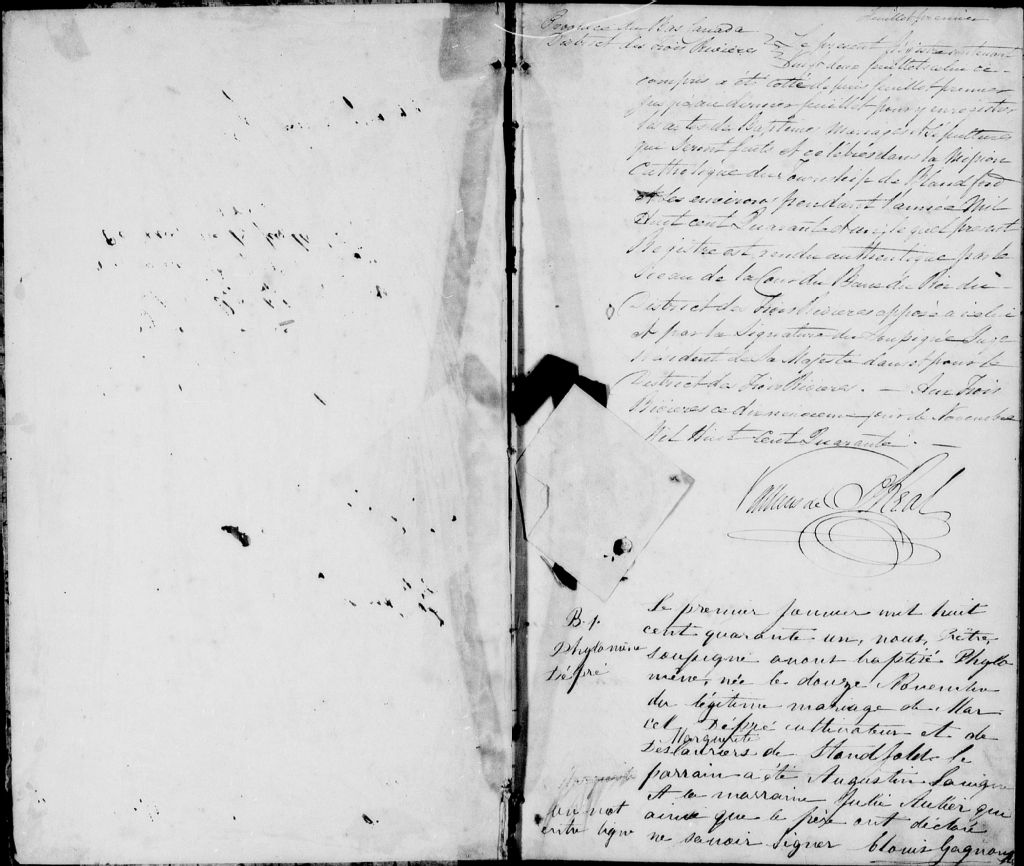 feuillet premier
Province du Bas Canada
District des trois Rivières
Le présent Régistre contenant
Vingt deux feuillets celui ci
compris a été cotté depuis feuillet premier
jusqu'au dernier feuillet pour y enregistrer
les actes de Baptêmes Mariages et Sépultures
qui seront faits et célébrés dans la Mission
Catholique du Township de Blandford
et les environs pendant l'année Mil
Huit cent Quarante et un, lequel présent
Registre est rendu authentique par le
Sceau de la Cour du Banc du Roi du
District des Trois Rivières apposé à icelui
et par la Signature du Soussigné Juge
résident de Sa Majesté dans et pour le
District des Trois Rivières. — Aux Trois
Rivières ce dixneuvieme jour de Novembre
Mil Huit Cent Quarante. —
Vallières de St Réal
B. 1.
Phylomène
Dépré
Le premier Janvier mil huit
cent quarante un, nous, Prêtre,
soussigné avons baptisé Phylo
mène, née le douze Novembre
du légitime mariage de Mar
cel Dépré cultivateur et de
Marguerite
Deslauriers de Standfold. le
parrain a été Augustin
Et la marraine Julie qui
ainsi que le père ont déclaré
ne savoir signer Clovis Gagnon
Marguerite
un mot
entre ligne